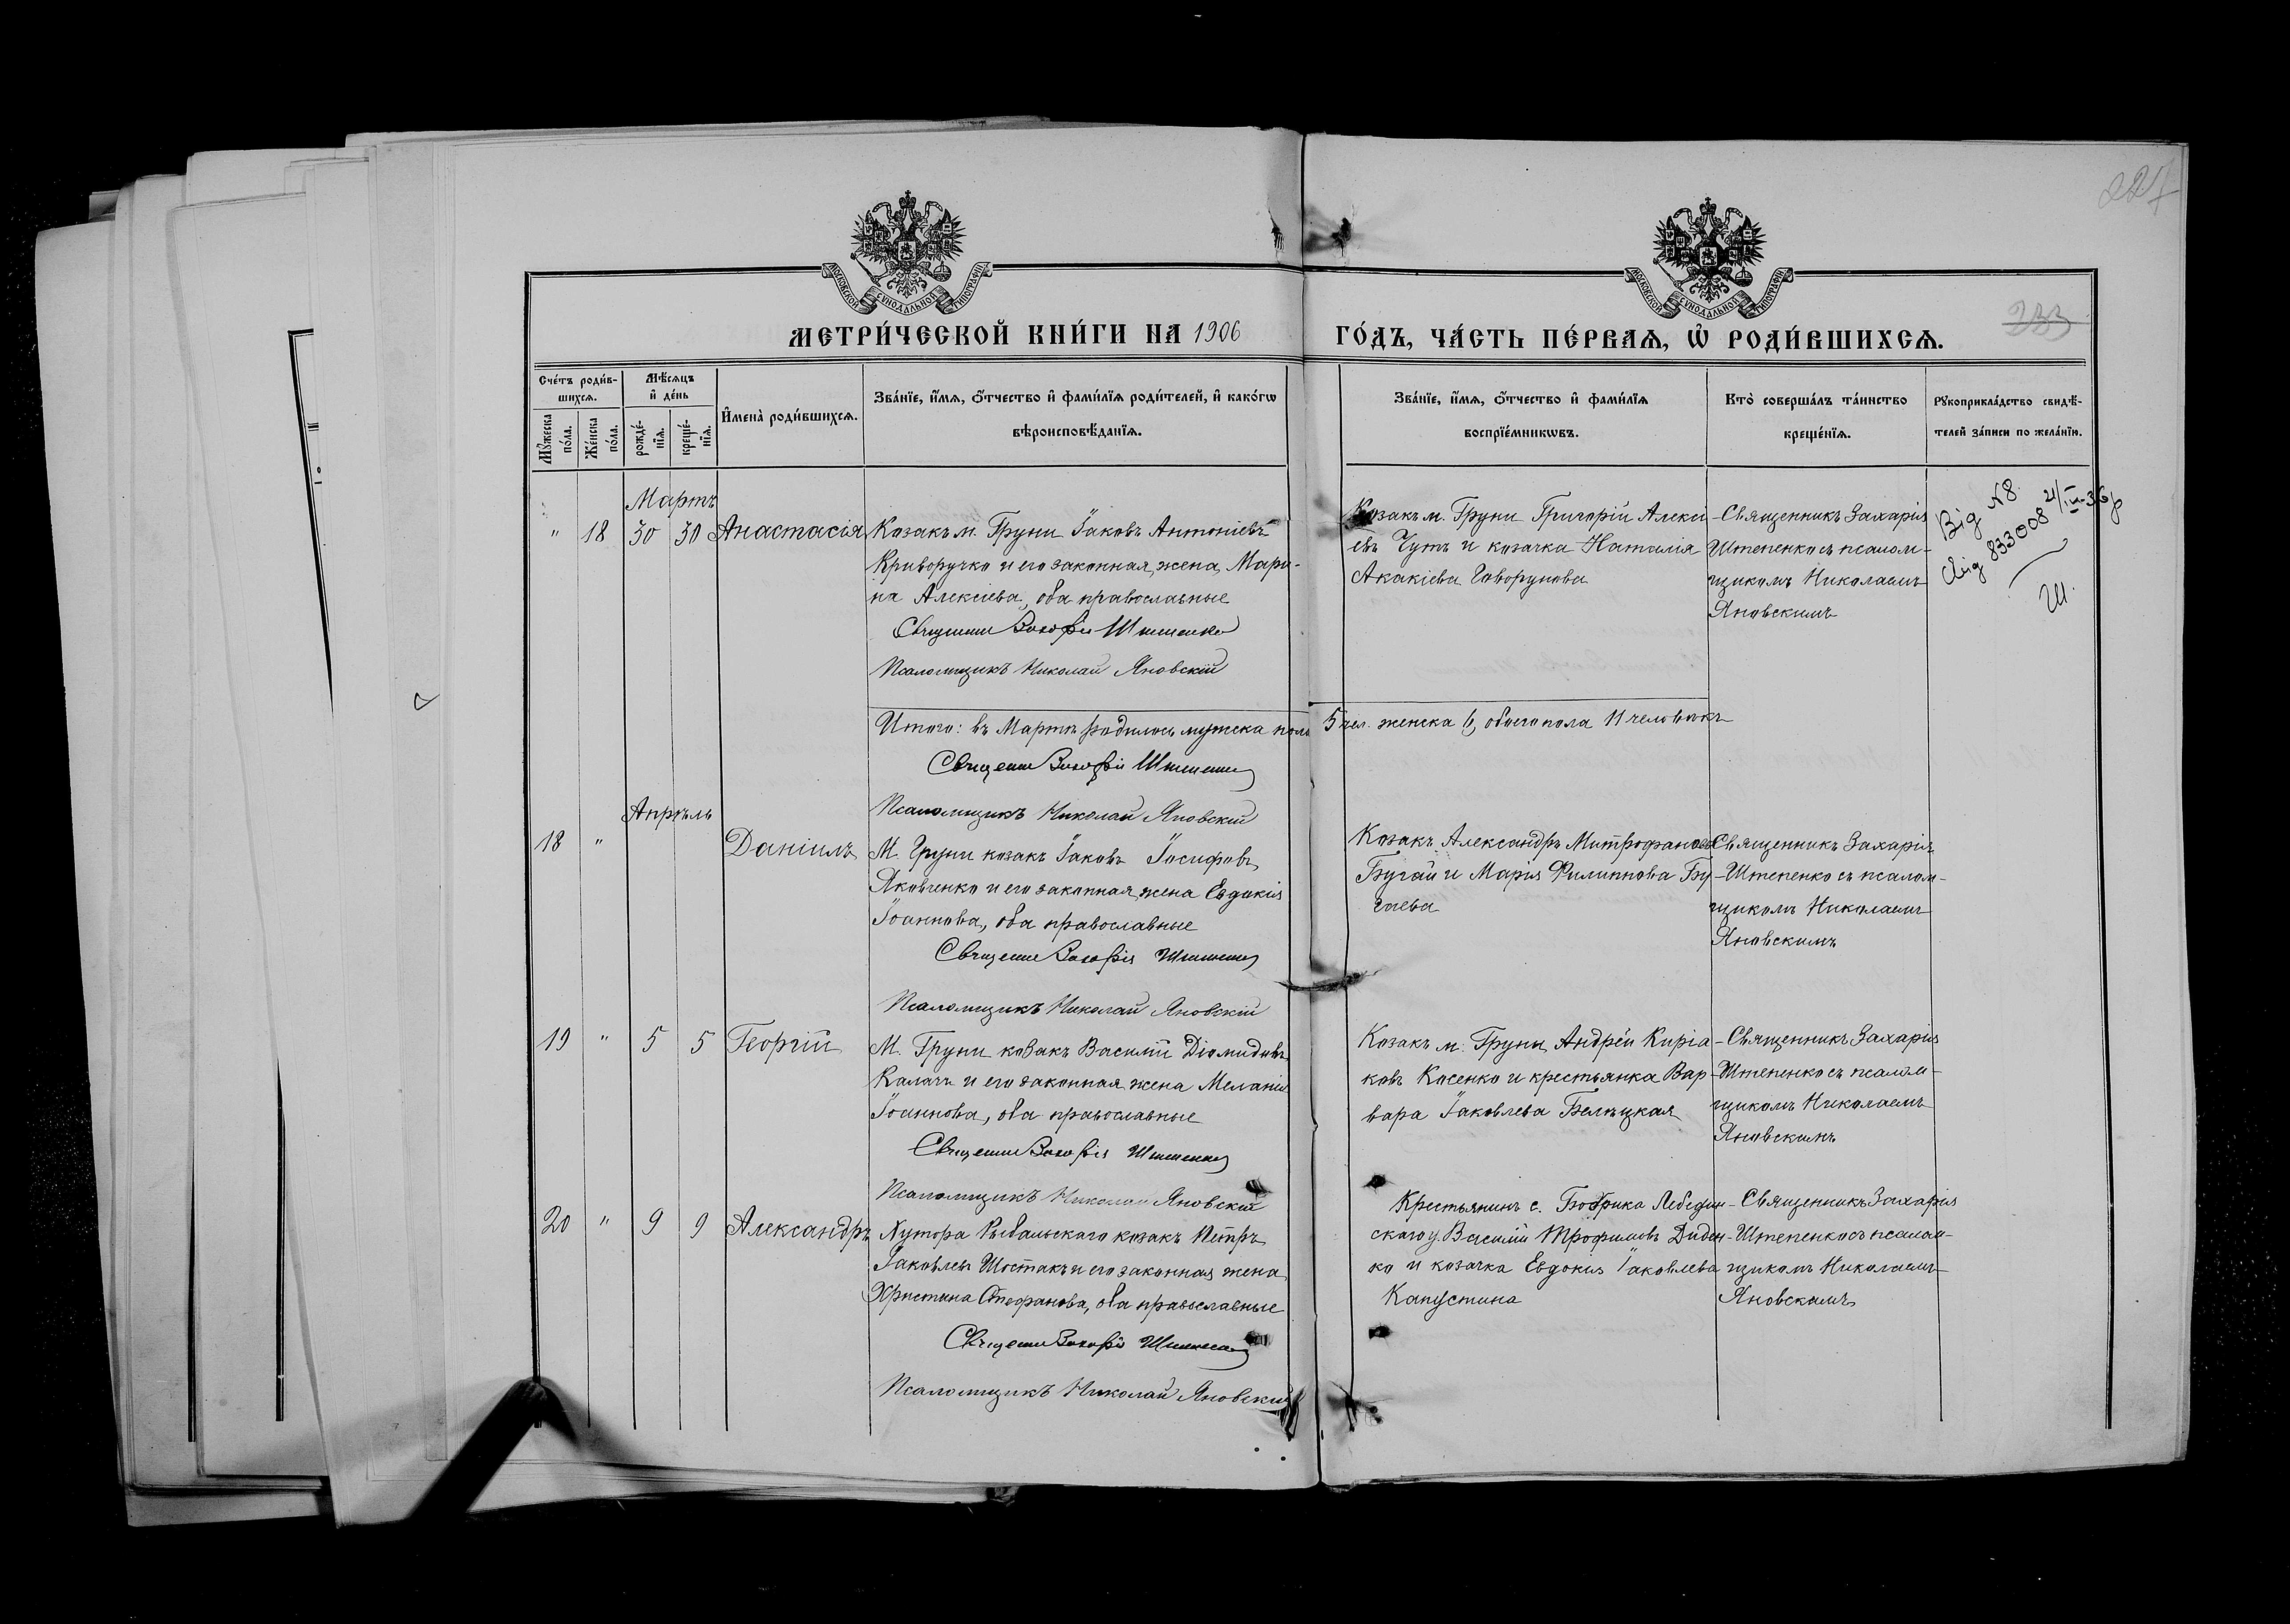 227
МОСКОВСКОЙ СѴНОДАЛЬНОЙ ТИПОГРАФІИ
МОСКОВСКОЙ СѴНОДАЛЬНОЙ ТИПОГРАФІИ
МЕТРИ́ЧЕСКОЙ КНИ́ГИ НА 1906
ГО́ДЪ, ЧА́СТЬ ПЕ́РВАѦ, Ѽ РОДИ́ВШИХСѦ.
233
Сче́тъ роди́в-
шихсѧ.
Мꙋ́жеска
по́ла.
Же́нска
по́ла.
Мѣ́сѧцъ
и҆ де́нь
рожде́-
нїѧ.
креще́-
нїѧ.
И҆мена̀ роди́вшихсѧ.
Зва́нїе, и҆́мѧ, ѻ҆́тчество и҆ фами́лїѧ роди́телей, и҆ како́гѡ
вѣроисповѣ́данїѧ.
Зва́нїе, и҆́мѧ, ѻ҆́тчество и҆ фами́лїѧ
воспрїе́мникѡвъ.
Кто̀ соверша́лъ та́инство
креще́нїѧ.
Рꙋкоприкла́дство свидѣ́-
телей за́писи по жела́нїю.
Мартъ
" 18 30 30 Анастасія
Козакъ м. Груни Іаковъ Антоніевъ
Криворучко и его законная жена Мари-
на Алексіева, оба православные
Священ Захарія Штепенко
Псаломщикъ Николай Яновскій
Козакъ м. Груни Григорій Алекси-
евъ Чутъ и козачка Наталія
Акакіева Говорунова
Священникъ Захарія
Штепенко съ псалом-
щикомъ Николаемъ
Яновскимъ
Від N8 21/III-36р
Свід 833008
Ш.
Итого: въ Мартѣ родилось мужска пола 5 чел. женска 6, обоего пола 11 человѣкъ
Священ Захарія Штепенко
Псаломщикъ Николай Яновскій
Апрѣль
18 " Даніилъ
М. Груни козакъ Іаковъ Іосифовъ
Яковченко и его законная жена Евдокія
Іоаннова, оба православные
Священ Захарія Штепенко
Псаломщикъ Николай Яновскій
Козакъ Александръ Митрофановъ
Бугай и Марія Филиппова Бу-
гаева
Священникъ Захарія
Штепенко съ псалом-
щикомъ Николаемъ
Яновскимъ
19 " 5 5 Георгій
М. Груни козакъ Василій Діомидовъ
Калачъ и его законная жена Меланія
Іоаннова, оба православные
Священ Захарія Штепенко
Псаломщикъ Николай Яновскій
Козакъ м. Груни Андрей Киріа-
ковъ Косенко и крестьянка Вар-
вара Іаковлева Белецкая
Священникъ Захарія
Штепенко съ псалом-
щикомъ Николаемъ
Яновскимъ
20 " 9 9 Александръ
Хутора Рыбальскаго козакъ Петръ
Іаковлевъ Шостакъ и его законная жена
Христина Стефанова, оба православные
Священ Захарія Штепенко
Псаломщикъ Николай Яновскій
Крестьянинъ с. Бобрика Лебедин-
скаго у. Василій Трофимовъ Диден-
ко и козачка Евдокія Іаковлева
Капустина
Священникъ Захарія
Штепенко съ псалом-
щикомъ Николаемъ
Яновскимъ